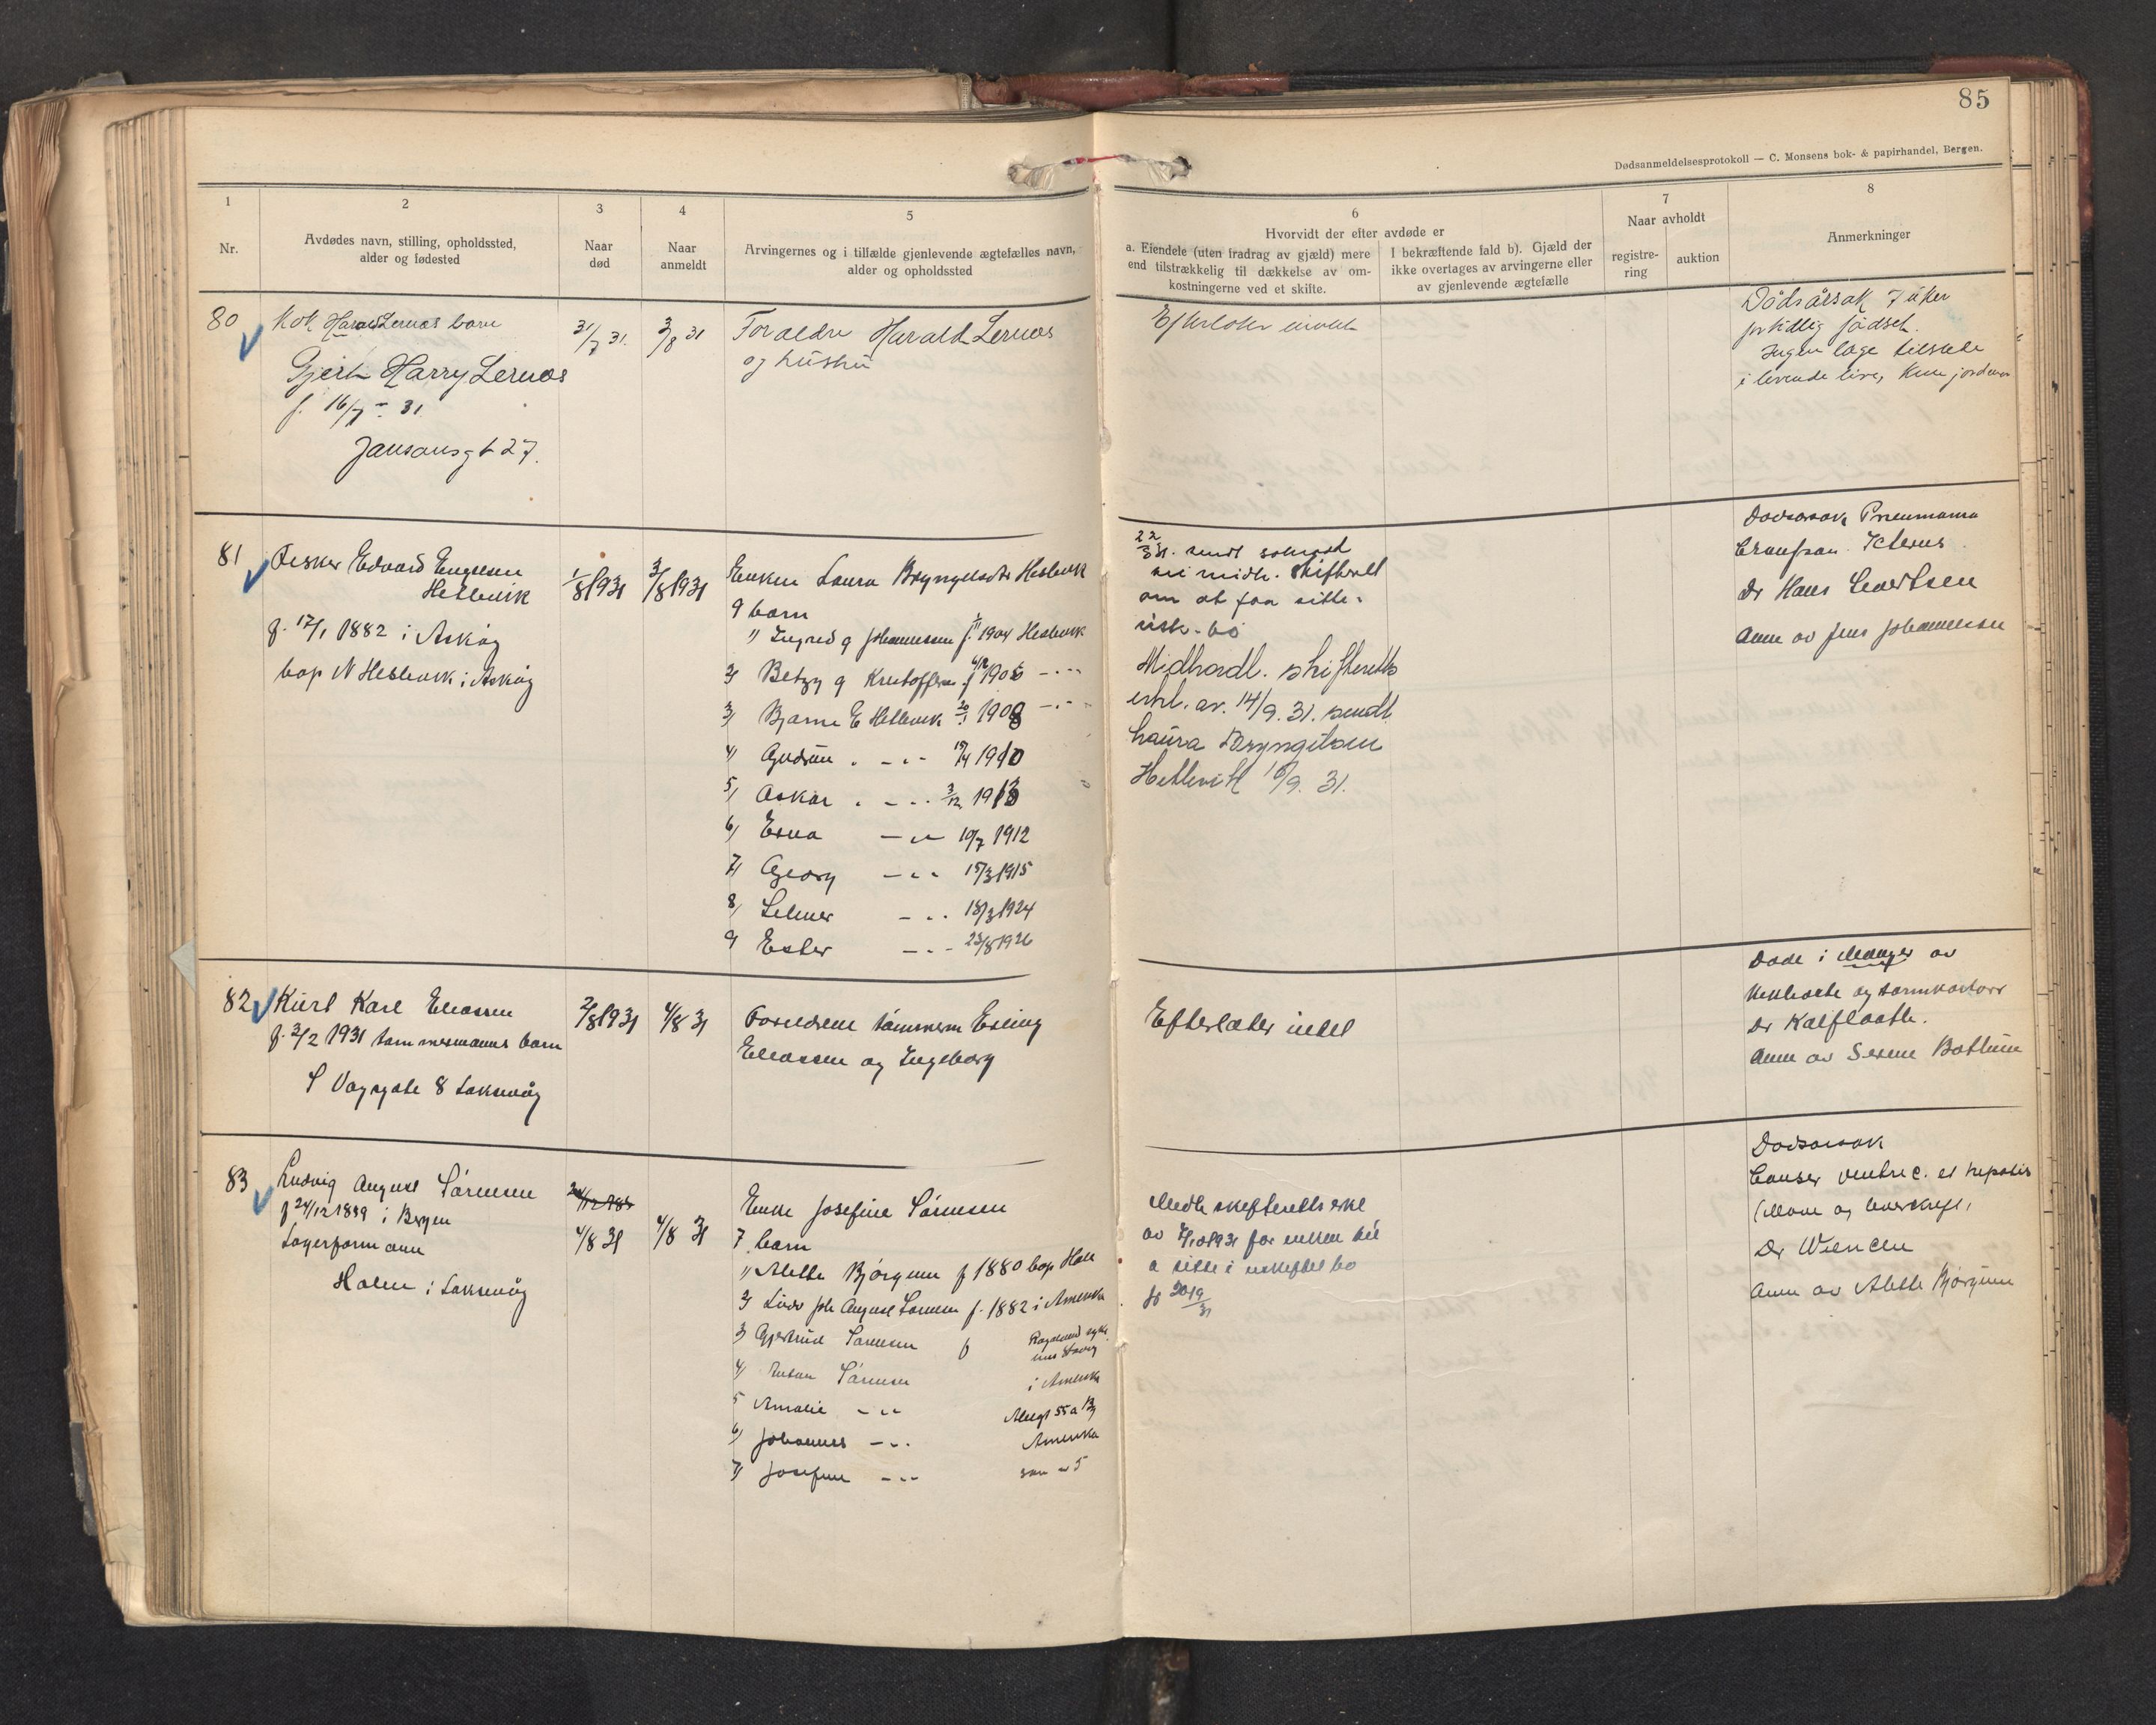 85
Dødsanmeldelsesprotokoll — C. Monsens bok- & papirhandel, Bergen.
1
Nr.
2
Avdødes navn, stilling, opholdssted,
alder og fødested
3
Naar
død
4
Naar
anmeldt
5
Arvingernes og i tilfælde gjenlevende ægtefælles navn,
alder og opholdssted
6
Hvorvidt der efter avdøde er
a. Eiendele (uten fradrag av gjæld) mere
end tilstrækkelig til dækkelse av om-
kostningerne ved et skifte.
I bekræftende fald b). Gjæld der
ikke overtages av arvingerne eller
av gjenlevende ægtefælle
7
Naar avholdt
registre-
ring
auktion
8
Anmerkninger
80
Kok Harald Lernæs barn
Gjert Harry Lernæs
f. 16/7 - 31.
Jansonsgt 27.
31/7 31.
3/8 31
Foraldre Harald Lernæs
og hustru
Efterlater intet
Dødsårsak 7 uker
for tidlig fødsel.
Ingen læge tilstede
i levende live, Kun jordmor
81
Fisker Edvard Engelsen
Hetlevik
f. 17/1 1882 i Askøy
bop N Hetlevik i Askøy
1/8 1931
3/8 1931
Enken Laura Bryngelsdtr Hetlevik
9 barn
1) Ingrid g Johannessen f. 1904 Hetlevik
2) Betzy g Kristoffersen f 1906 - " -
3) Bjarne E Hetlevik 1908 - " -
4) Gudrun - " - 1910
5) Oskar - " - 3/12 1913
6) Erna - " - 10/7 1912
7) Georg - " - 15/3 1915
8) Selmer - " - 18/3 1924
9 Ester - " - 23/8 1926
22/8 31. sendt søknad
til midh. skifterett
om at faa sitte i
usk. bo
Midhordl. skifteretts
erkl. av. 14/9. 31. sendt
Laura Bryngelsen
Hetlevik 16/9. 31.
Dødsårsak Pneumonia
Icterus
Dr Hans Evertsen
Anm av Jens Johannessen
82
Kurt Karl Eliassen
f. 3/2 1931 tømmermanns barn
S Vagsgate 8 Laksevåg
2/8 1931
4/8 31
Foreldrene tømmerm Erling
Eliassen og Ingeborg
Efterlater intet
Døde i Manger av
og tarmkatarr
Dr Kalfloath.
Anm av Serine Bøthun
83
Ludvig August Sørensen
f 24/12 1849 i Bergen
Lagerformann
Holen i Laksevåg
4/8 31
4/8 31
Enke Josefine Sørensen
7 barn
1) Alette Bjørgum f 1880 bop Holen
2) Ludv Joh August Sørensen f. 1882 i Amerika
3) Gjertrud Sørensen f
4) Anton Sørensen i Amerika
5 Amalie - " -
6) Johannes - " - Amerika
7) Josefine - " - som 5
Midh skifteretts erkl
av 1931 for enken til
å sitte i uskiftet bo
Dødsårsak
Cancer ventric. et hepatis
(Mave og leverkreft)
Dr Wiencke
Anm av Alette Bjørgum